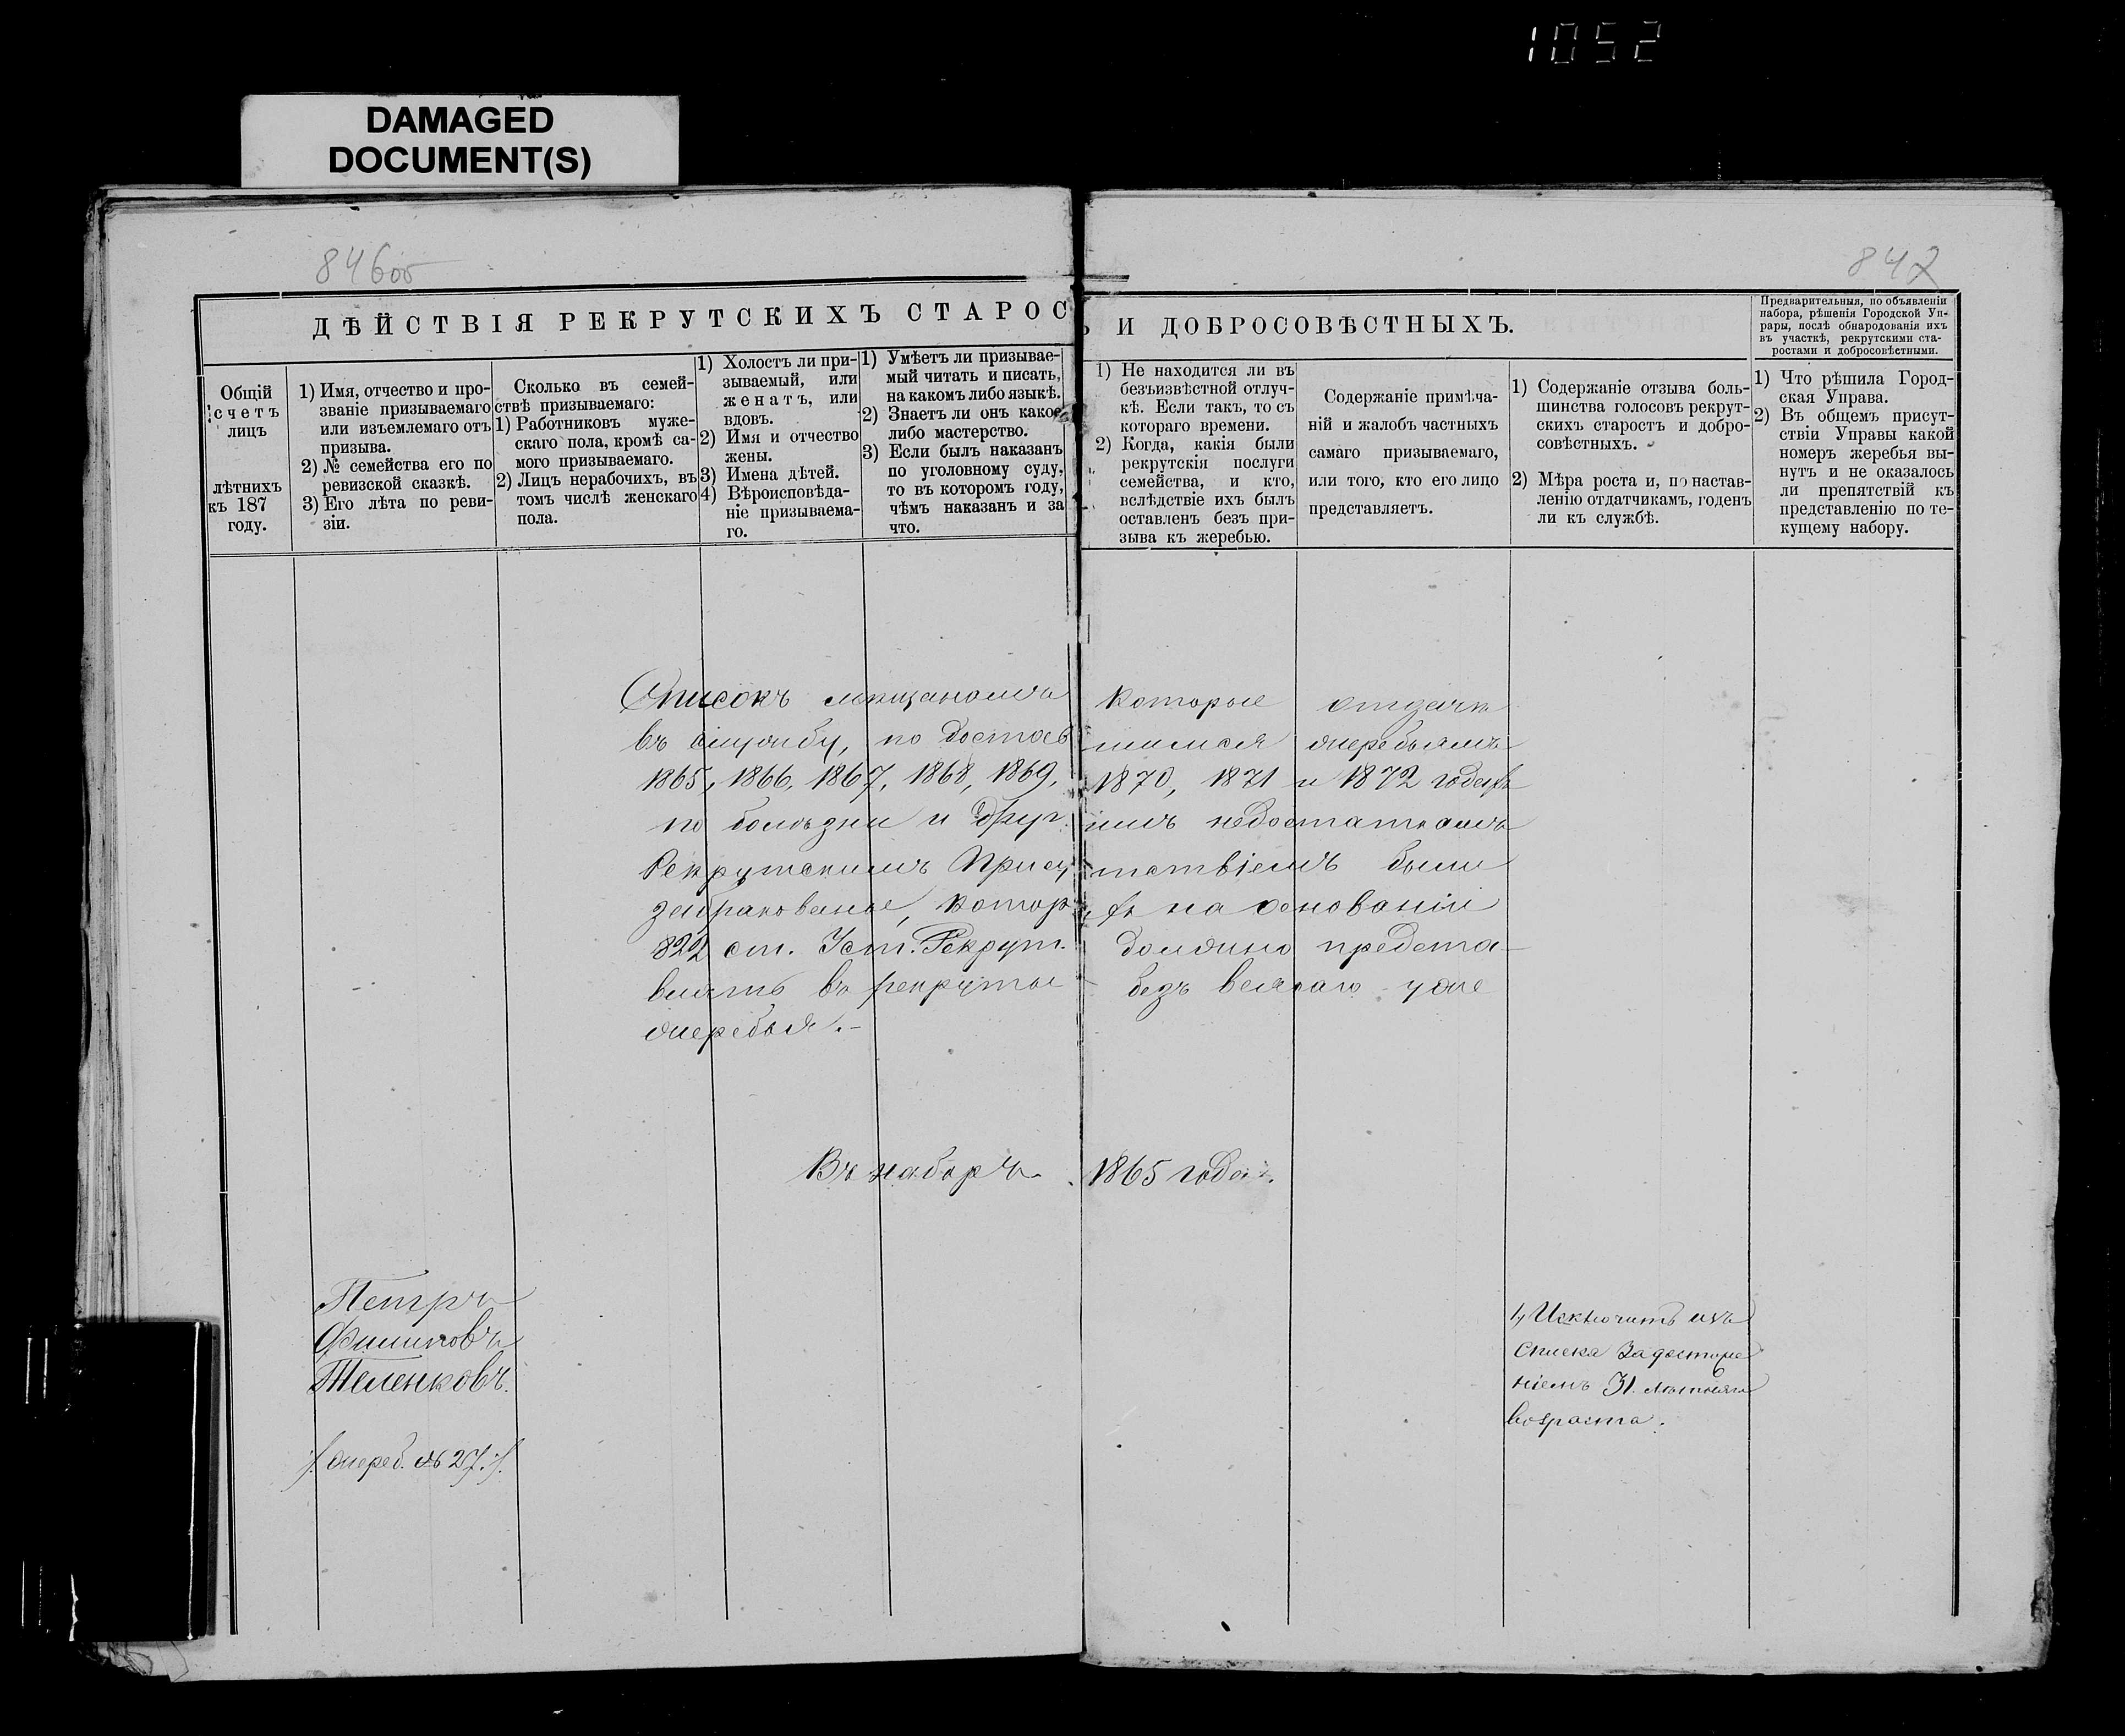 1052
DAMAGED
DOCUMENT(S)
846об
847
ДѢЙСТВІЯ РЕКРУТСКИХЪ СТАРОС
Ъ И ДОБРОСОВѢСТНЫХЪ.
Предварительныя, по объявленіи
набора, рѣшенія Городской Уп-
равы, послѣ обнародованія ихъ
въ участкѣ, рекрутскими ста-
ростами и добросовѣстными.
Общій
счетъ
лицъ
лѣтнихъ
къ 187
году.
1) Имя, отчество и про-
званіе призываемаго
или изъемлемаго отъ
призыва.
2) № семейства его по
ревизской сказкѣ.
3) Его лѣта по реви-
зіи.
Сколько въ семей-
ствѣ призываемаго:
1) Работниковъ муже-
скаго пола, кромѣ са-
мого призываемаго.
2) Лицъ нерабочихъ, въ
томъ числѣ женскаго
пола.
1) Холостъ ли при-
зываемый, или
женатъ, или
вдовъ.
2) Имя и отчество
жены.
3) Имена дѣтей.
4) Вѣроисповѣда-
ніе призываема-
го.
1) Умѣетъ ли призывае-
мый читать и писать,
на какомъ либо языкѣ.
2) Знаетъ ли онъ какое
либо мастерство.
3) Если былъ наказанъ
по уголовному суду,
то въ которомъ году,
чѣмъ наказанъ и за
что.
1) Не находится ли въ
безъизвѣстной отлуч-
кѣ. Если такъ, то съ
котораго времени.
2) Когда, какія были
рекрутскія послуги
семейства, и кто,
вслѣдствіе ихъ былъ
оставленъ безъ при-
зыва къ жеребью.
Содержаніе примѣча-
ній и жалобъ частныхъ
самаго призываемаго,
или того, кто его лицо
представляетъ.
1) Содержаніе отзыва боль-
шинства голосовъ рекрут-
скихъ старостъ и добро-
совѣстныхъ.
2) Мѣра роста и, по настав-
ленію отдатчикамъ, годенъ
ли къ службѣ.
1) Что рѣшила Город-
ская Управа.
2) Въ общемъ присут-
ствіи Управы какой
номеръ жеребья вы-
нутъ и не оказалось
ли препятствій къ
представленію по те-
кущему набору.
Списокъ мѣщаномъ которые отдачи
въ службу, по достав шимся жеребьямъ
1865, 1866, 1867, 1868, 1869, 1870, 1871 и 1872 годахъ
по болѣзни и друг имъ недостаткамъ
Рекрутскимъ Прису тствіемъ были
забракованые, котор на основаніи
822 ст. Уст. Рекрут. должно предста-
влять въ рекруты безъ всякаго уже
жеребья.-
Въ наборъ 1865 года.
Петръ
Филиповъ
Теленковъ.
/. жереб. № 27. /.
1, Исключить изъ
списка за достиже
ніемъ 31 лѣтняго
возраста.